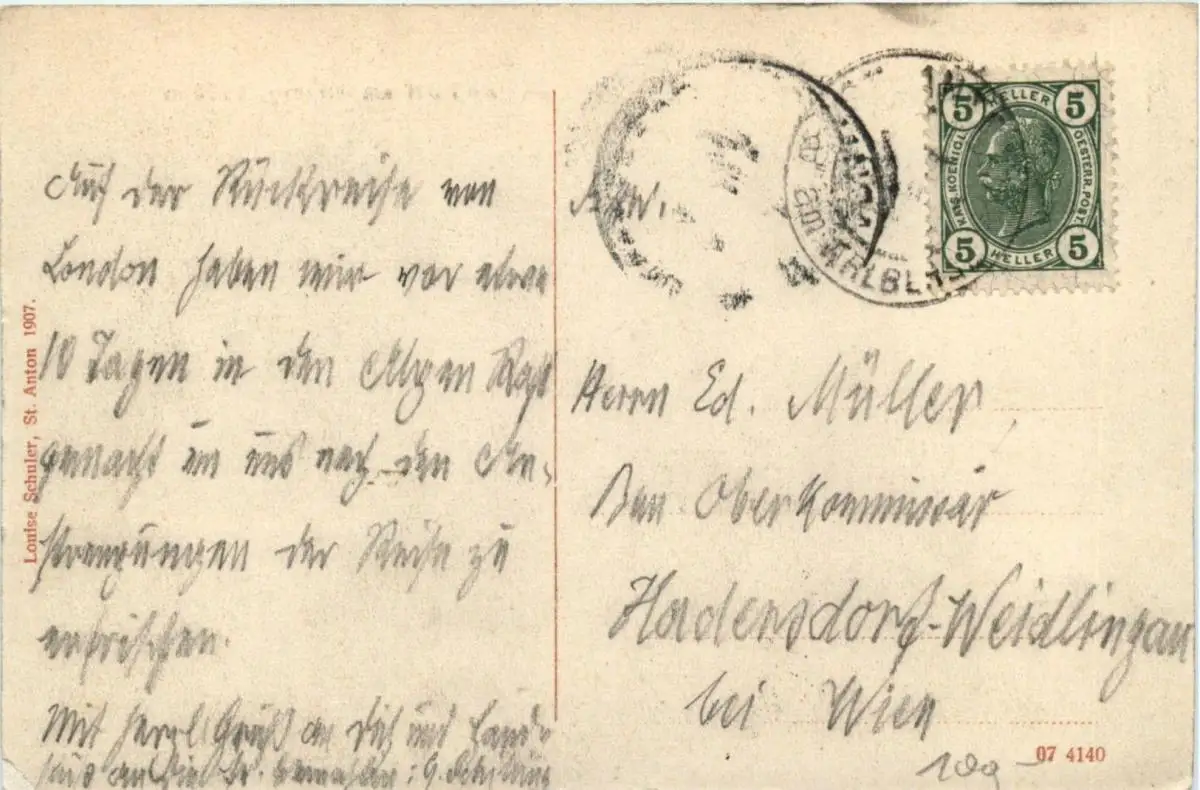 Auf der Rückreise von
London haben wir vor etwa
10 Tagen in den Alpen Rast
gemacht um uns nach den An-
strengungen der Reise zu
erfrischen.
Mit herzl. Gruß an Dich und Hand-
kuß an Die
Louise Schuler, St. Anton 1907.
AM ARLBERG
5 HELLER 5
KAIS. KOENIGL. OESTERR. POST.
5 HELLER 5
Herrn Ed. Müller,
Bau Oberkommissär
Hadersdorf-Weidlingau
bei Wien
07 4140